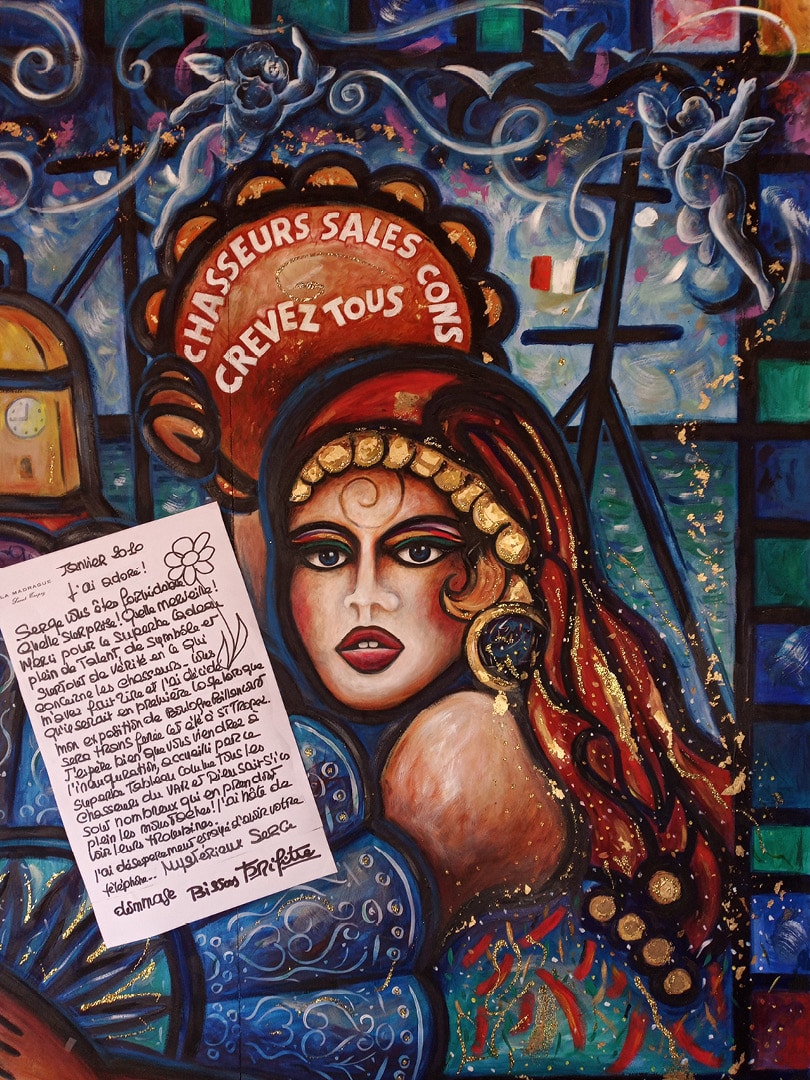 CHASSEURS SALES CONS
CREVEZ TOUS
LA MADRAGUE
Saint Tropez
Janvier 2010
J'ai adoré!
Serge vous êtes formidable
Quelle surprise! Quelle merveille!
Merci pour ce superbe cadeau
plein de talent de symbole et
surtout de vérité en ce qui
concerne les chasseurs. Vous
m'avez fait rire et j'ai décidé
qu'il serait en première loge lorsque
mon exposition de Boulogne Billancourt
sera transférée cet été à St Tropez.
J'espère bien que vous viendrez à
l'inauguration, accueilli par ce
superbe tableau comme tous les
chasseurs du VAR et Dieu sait s'ils
sont nombreux qui en prendront
plein les moustaches! J'ai hâte de
voir leurs
J'ai désespérement essayé d'avoir votre
téléphone... Mystérieux Serge
dommage Bisous Brigitte